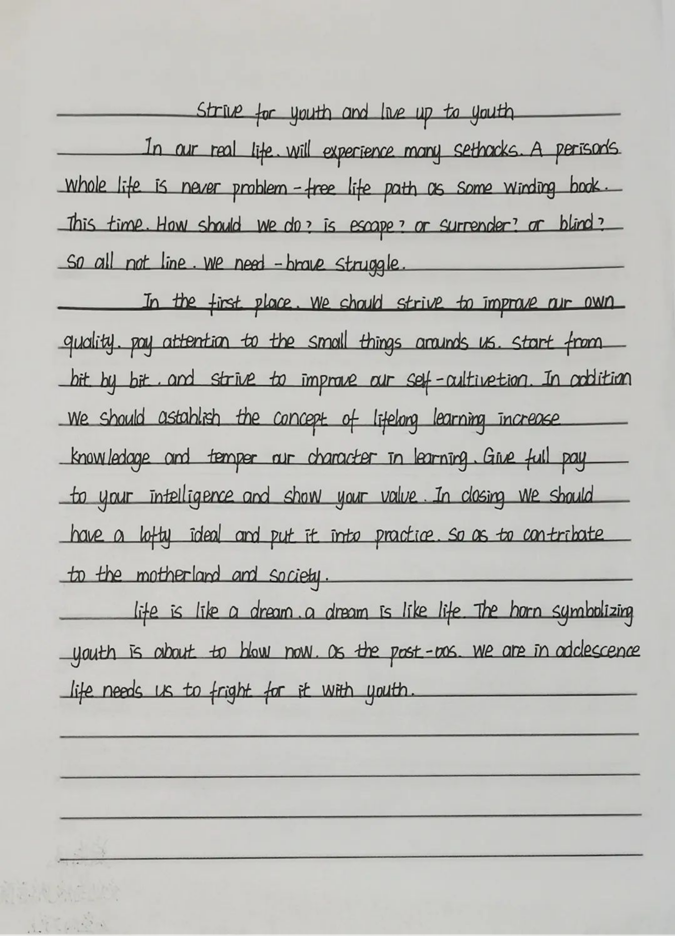 Strive for youth and live up to youth
In our real life. will experience many sethacks. A perison's
whole life is never problem-free life path as some winding book.
This time. How should we do? is escape? or surrender? or blind?
so all not line. we need-brave struggle.
In the first place. we should strive to improve our own
quality. pay attention to the small things arounds us. start from
bit by bit. and strive to improve our self-cultivetion. In addition
we should astablish the concept of lifelong learning increase
knowledage and temper our character in learning. Give full pay
to your intelligence and show your value. In closing we should
have a lofty ideal and put it into practice. so as to contribate
to the motherland and society.
life is like a dream. a dream is like life. The horn symbolizing
youth is about to blow now. as the post-oos. we are in adclescence
life needs us to fright for it with youth.